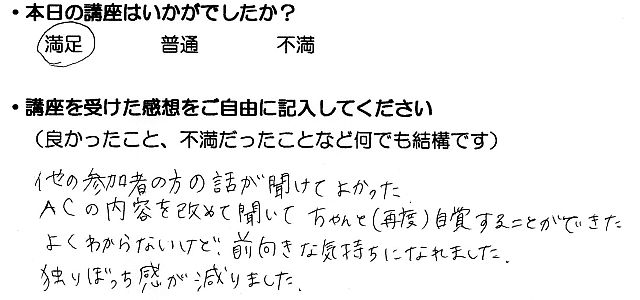 ・本日の講座はいかがでしたか？
満足 普通 不満
・講座を受けた感想をご自由に記入してください
（良かったこと、不満だったことなど何でも結構です）
他の参加者の方の話が聞けてよかった
ACの内容を改めて聞いてちゃんと(再度)自覚することができた
よくわからないけど、前向きな気持ちになれました.
独りぼっち感が減りました.